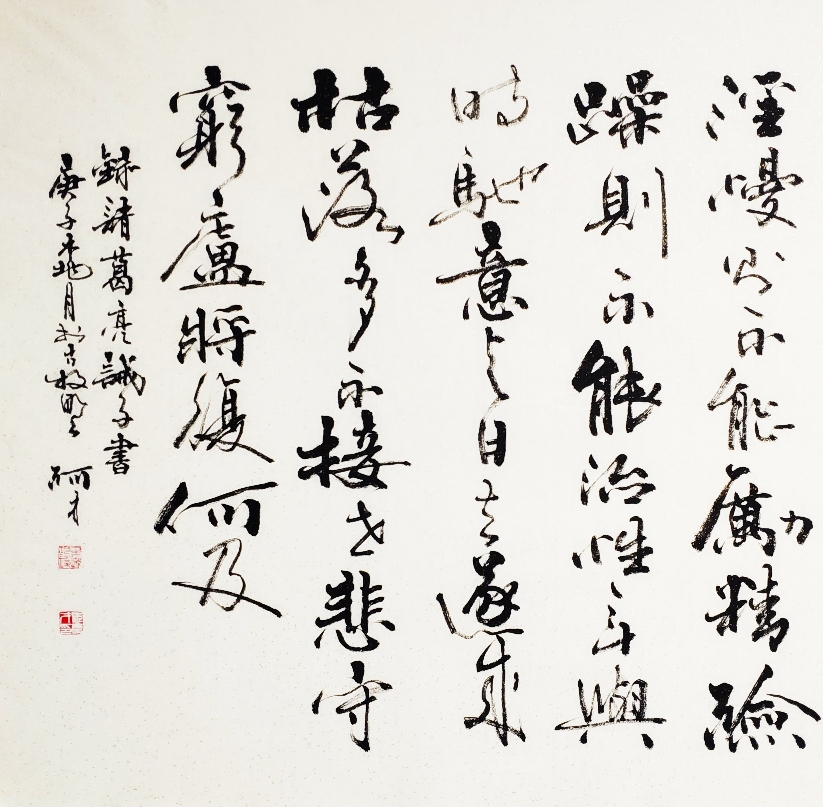 淫慢则不能勵精險
躁則不能治性年與
時馳意与日去遂成
枯落多不接世悲守
窮廬將復何及
錄諸葛亮誡子書
庚子年桃月於古牧野